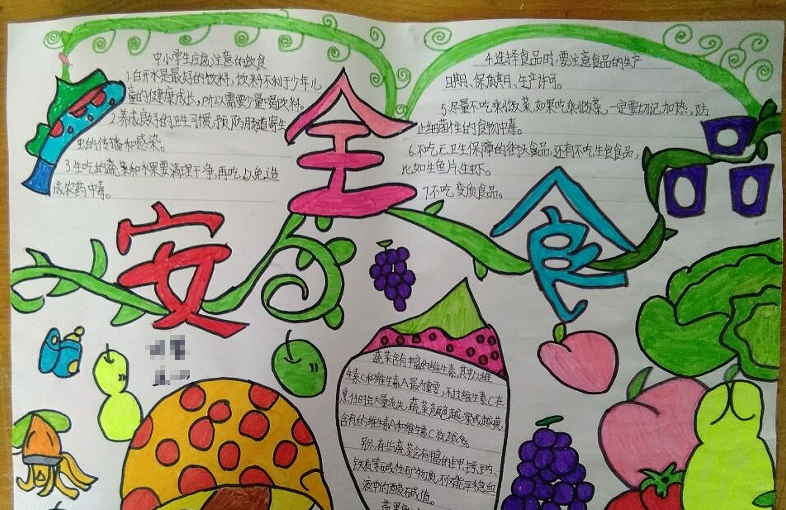 中小学生应该注意的饮食
1.白开水是最好的饮料,饮料不利于少年儿
童的健康成长,所以需要少量喝饮料。
2.养成良好的卫生习惯,预防肠道寄生
虫的传播和感染。
3.生吃的蔬菜和水果要清理干净,再吃,以免造
成农药中毒。
4.选择食品时,要注意食品的生产
日期、保质期、生产许可。
5.尽量不吃剩饭菜,如果吃剩饭菜,一定要切记加热,防
止细菌性的食物中毒。
6.不吃无卫生保障的街头食品,还有不吃生食食品,
比如生鱼片、生虾。
7.不吃变质食品。
安全食
蔬菜含有丰富的维生素,其中以维
生素C和维生素A最为重要,不过维生素C在
含有的维生素A和维生素C就越高。